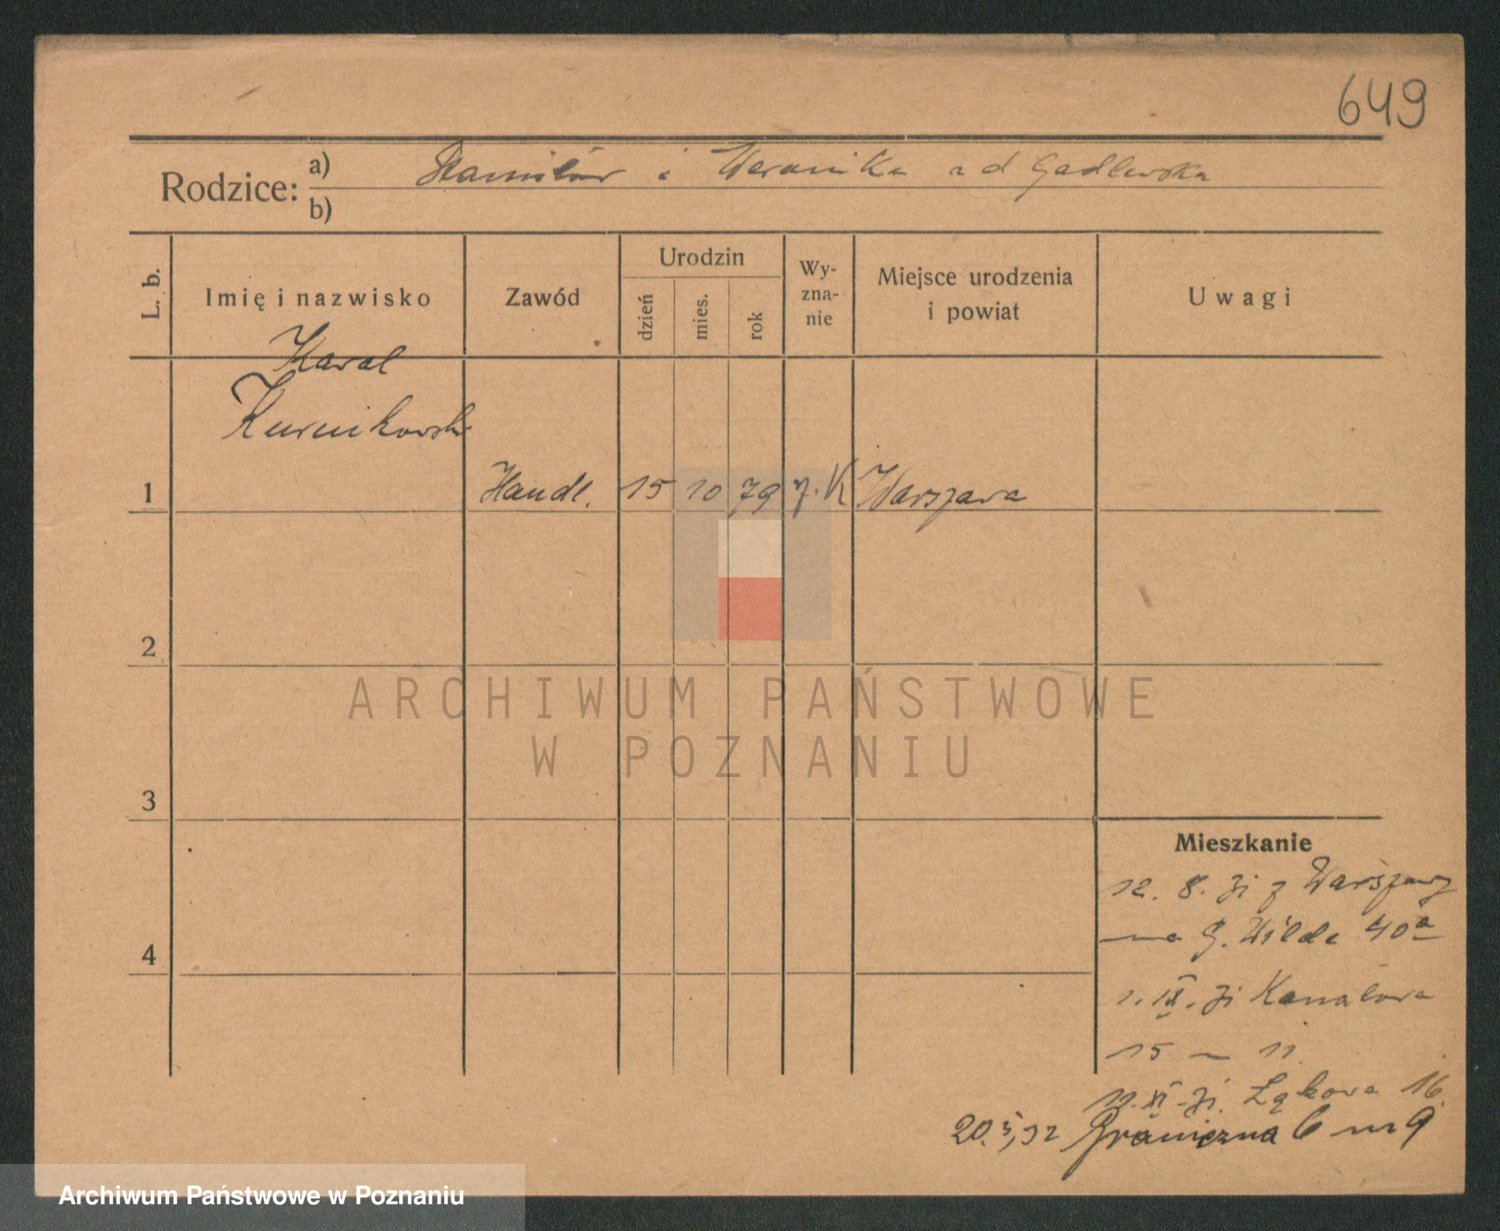 649
Rodzice: a) Stanisław i Weronika z d Godlewska
b)
L. b.
Imię i nazwisko
Zawód
Urodzin
dzień
mies.
rok
Wy-
zna-
nie
Miejsce urodzenia
i powiat
Uwagi
Karol
Kurnikowski
1 Handl. 15 10 79 r. K Warszawa
2
3
4
ARCHIWUM PAŃSTWOWE
W POZNANIU
Mieszkanie
12. 8. 31 z Warszawy
na G. Wilda 40a
1. IX. 31 Kanałowa
15 — 11
11. XI. 31. Łąkowa 16.
20.5,32 Graniczna 6 m 9
Archiwum Państwowe w Poznaniu